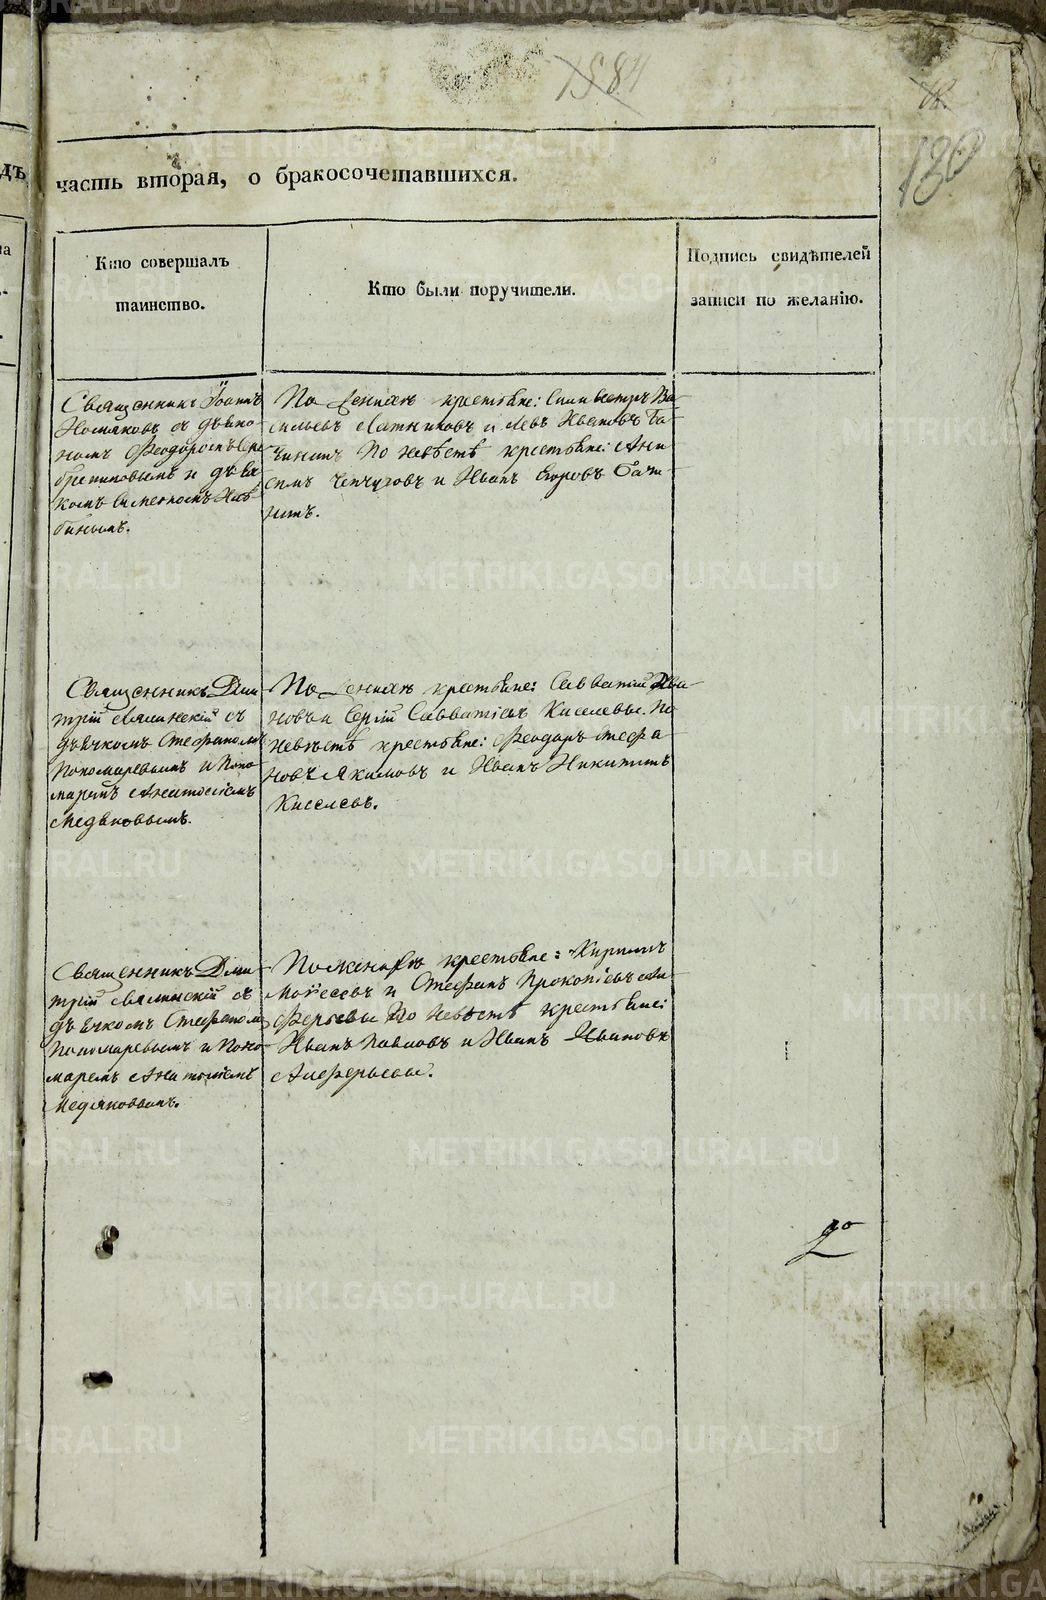 1584
130
часть вторая, о бракосочетавшихся.
Кто совершалъ
таинство.
Кто были поручители.
Подпись свидѣтелей
записи по желанію.
Священникъ Іоаннъ
Номяковъ съ дьяко
номъ Феодоромъ Сре
бренниковымъ и дьяч
комъ Симеономъ
По женихѣ крестьяне: Сильвестръ Ва
сильевъ Латниковъ и Левъ Ивановъ Ба
чининъ По невѣстѣ крестьяне: Ани
симъ Чепчуговъ и Иванъ Егоровъ Бачи
нинъ.
Священникъ Дми
трій съ
дьячкомъ Стефаномъ
Пономаревымъ и Поно
маремъ Анатоліемъ
Медяковымъ.
По женихѣ крестьяне: Савватій Ива
новъ и Сергій Савватіевъ Киселевы. По
невѣстѣ крестьяне: Феодоръ Стефа
новъ Якимовъ и Иванъ Никитинъ
Киселевъ.
Священникъ Дми
трій съ
дьячкомъ Стефаномъ
Пономаревымъ и Поно
маремъ Анатоліемъ
Медяковымъ.
По женихѣ крестьяне: Кириллъ
Моѵсеевъ и Стефанъ Прокопіевъ Али
ферьевы По невѣстѣ крестьяне:
Иванъ Павловъ и Иванъ Ивановъ
Алиферьевы.
METRIKI.GASO-URAL.RU